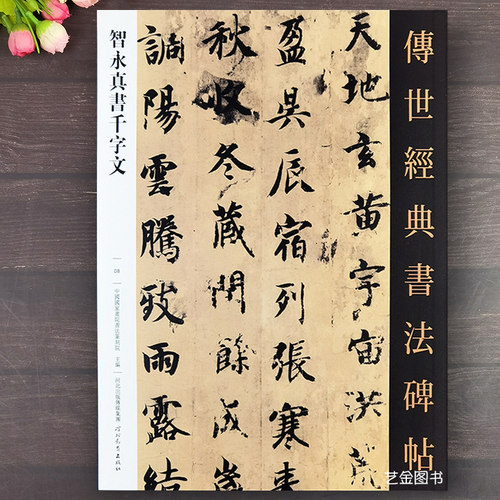 傳世經典書法碑帖
天地玄黄宇宙洪荒
盈昃辰宿列張寒來
秋收冬藏閏餘成歲
調陽雲騰致雨露結
智永真書千字文
08
中國國家畫院書法篆刻院 主編
河北出版傳媒集團
河北教育出版社
艺金图书